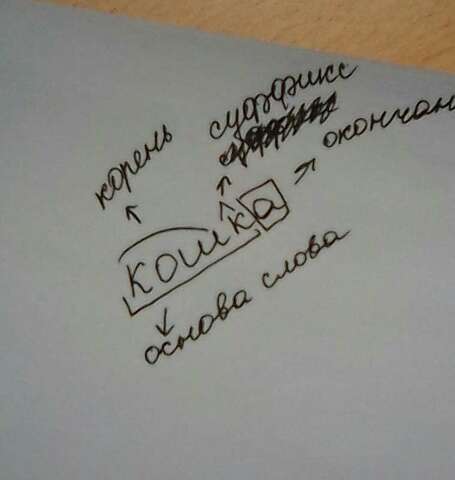 корень
суффикс
окончан
кошка
основа слова